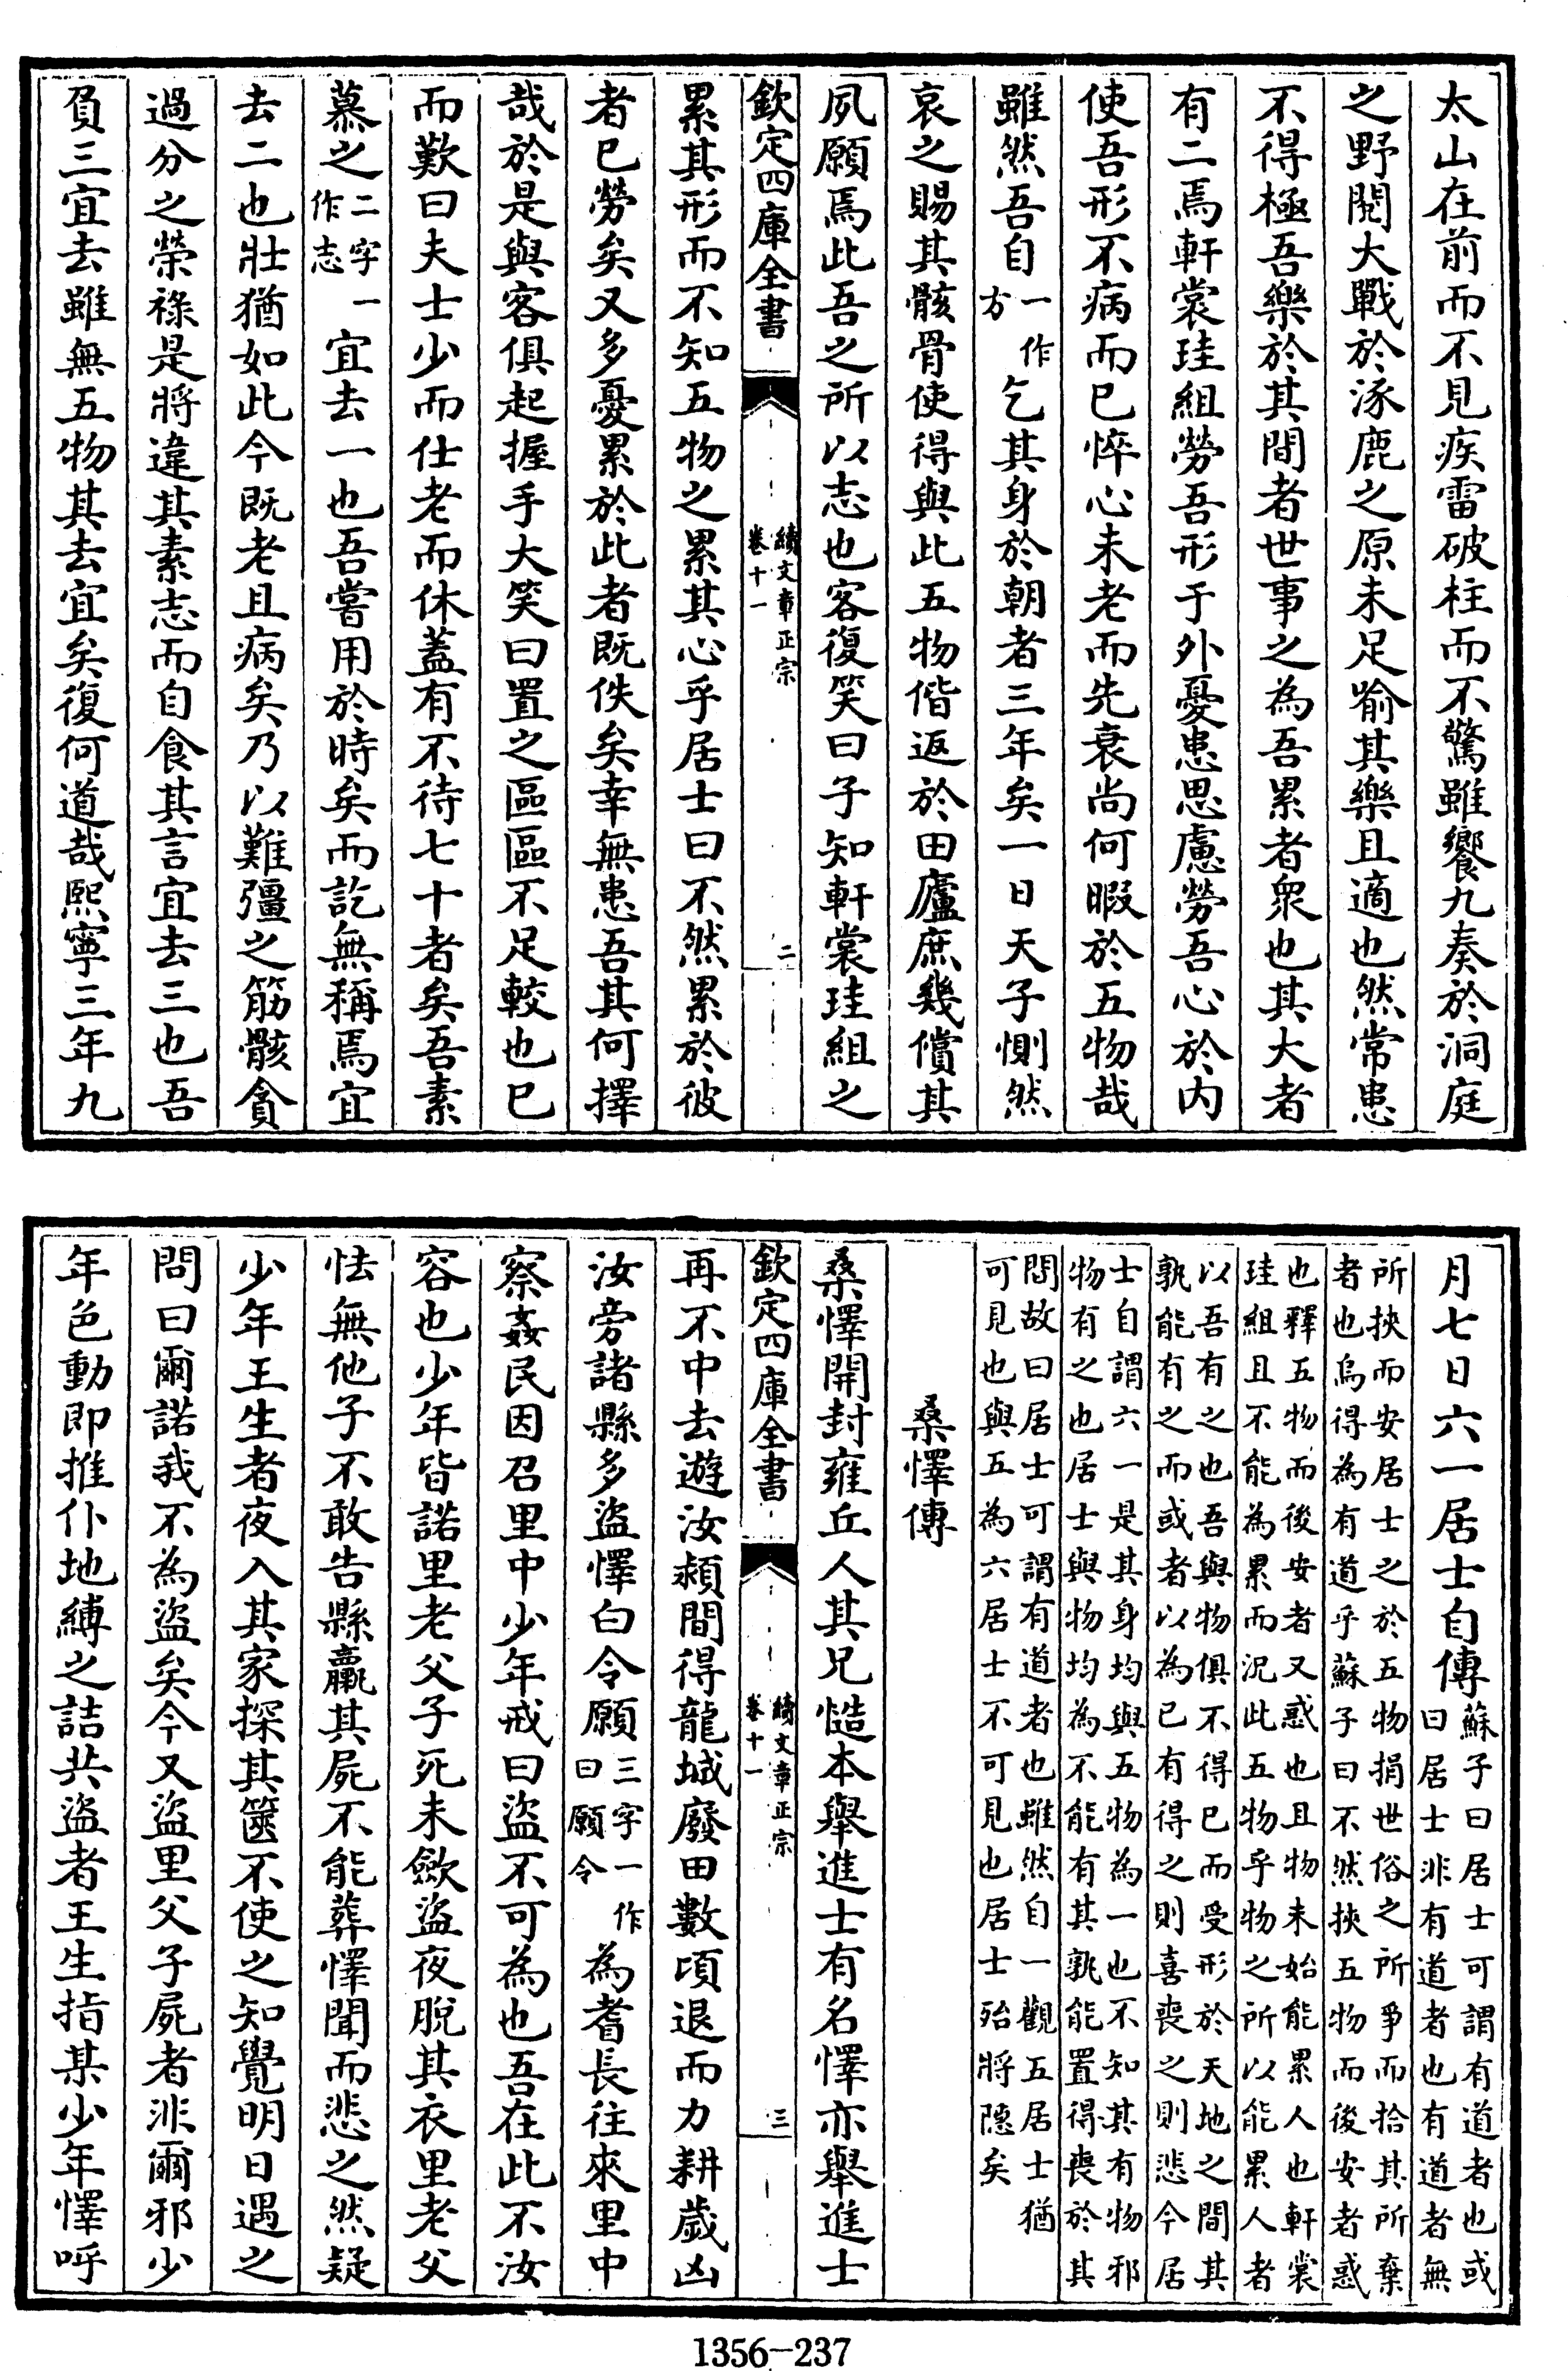 太山在前而不見疾雷破柱而不驚雖饗九奏於洞庭
之野閱大戰於涿鹿之原未足喻其樂且適也然常患
不得極吾樂於其間者世事之為吾累者衆也其大者
有二焉軒裳珪組勞吾形于外憂患思慮勞吾心於内
使吾形不病而已悴心未老而先衰尚何暇於五物哉
雖然吾自一作方乞其身於朝者三年矣一日天子惻然
哀之賜其骸骨使得與此五物偕返於田廬庶幾償其
夙願焉此吾之所以志也客復笑曰子知軒裳珪組之
欽定四庫全書 續文章正宗 卷十一 二
累其形而不知五物之累其心乎居士曰不然累於彼
者已勞矣又多憂累於此者既佚矣幸無患吾其何擇
哉於是與客俱起握手大笑曰置之區區不足較也已
而歎曰夫士少而仕老而休蓋有不待七十者矣吾素
慕之二字一作志宜去一也吾嘗用於時矣而訖無稱焉宜
去二也壯猶如此今既老且病矣乃以難彊之筋骸貪
過分之榮祿是將違其素志而自食其言宜去三也吾
負三宜去雖無五物其去宜矣復何道哉熙寧三年九
月七日六一居士自傳蘇子曰居士可謂有道者也或
曰居士非有道者也有道者無
所挾而安居士之於五物捐世俗之所爭而拾其所棄
者也烏得為有道乎蘇子曰不然挾五物而後安者惑
也釋五物而後安者又惑也且物未始能累人也軒裳
珪組且不能為累而況此五物乎物之所以能累人者
以吾有之也吾與物俱不得已而受形於天地之間其
孰能有之而或者以為已有得之則喜喪之則悲今居
士自謂六一是其身均與五物為一也不知其有物邪
物有之也居士與物均為不能有其孰能置得喪於其
間故曰居士可謂有道者也雖然自一觀五居士猶
可見也與五為六居士不可見也居士殆將隱矣
桑懌傳
桑懌開封雍丘人其兄慥本舉進士有名懌亦舉進士
欽定四庫全書 續文章正宗 卷十一 三
再不中去遊汝潁間得龍城廢田數頃退而力耕歲凶
汝旁諸縣多盜懌白令願三字一作曰願令為耆長往來里中
察姦民因召里中少年戒曰盜不可為也吾在此不汝
容也少年皆諾里老父子死未歛盜夜脫其衣里老父
怯無他子不敢告縣臝其屍不能葬懌聞而悲之然疑
少年王生者夜入其家探其篋不使之知覺明日遇之
問曰爾諾我不為盜矣今又盜里父子屍者非爾邪少
年色動即推仆地縛之詰共盜者王生指某少年懌呼
1356-237